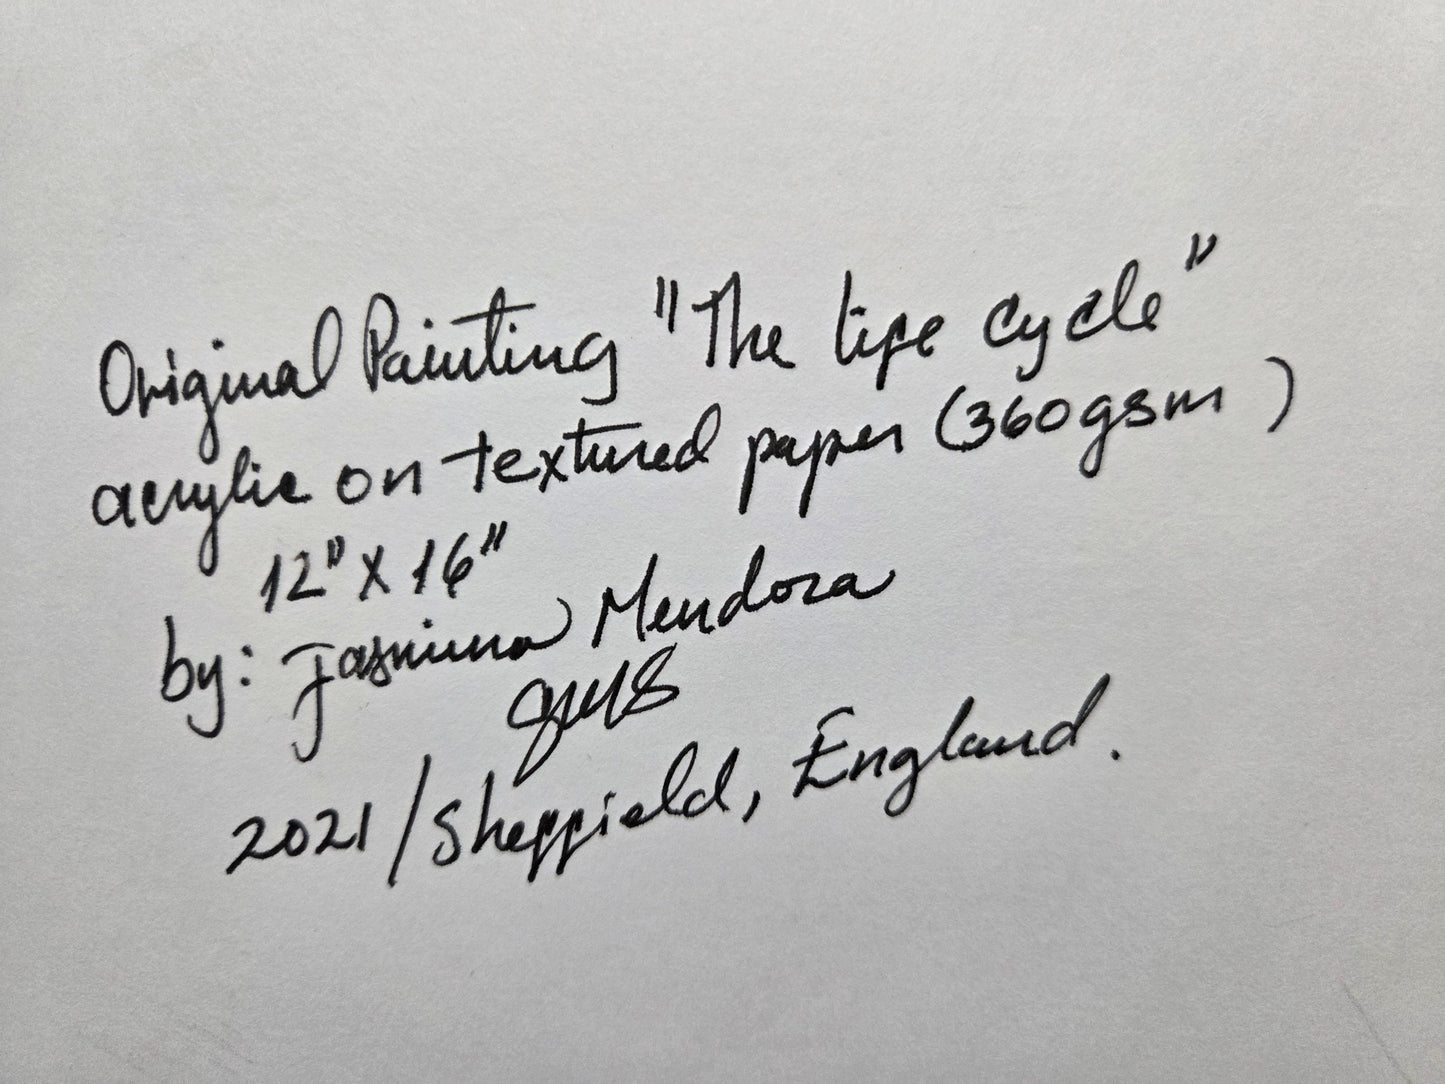 Original Painting "The life cycle"
acrylic on textured paper (360gsm)
12" X 16"
by: Jasmina Mendoza
2021/Sheffield, England.